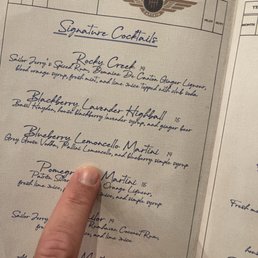 Signature Cocktails
Rocky Creek 14
Sailor Jerry's Spiced Rum, Domaine De Canton Ginger Liqueur,
blood orange syrup, fresh mint, and lime juice topped with club soda
Blackberry Lavender Highball 15
Basil Hayden, house blackberry lavender syrup, and ginger beer
Blueberry Lemoncello Martini 14
Grey Goose Vodka, Pallini Lemoncello, and blueberry simple syrup
Pomegr Martini 15
Orange Liqueur,
fresh lime juice, simple syrup
Sailor Jerry lor 14
Rumhaven Coconut Rum,
and lime juice
Fresh m